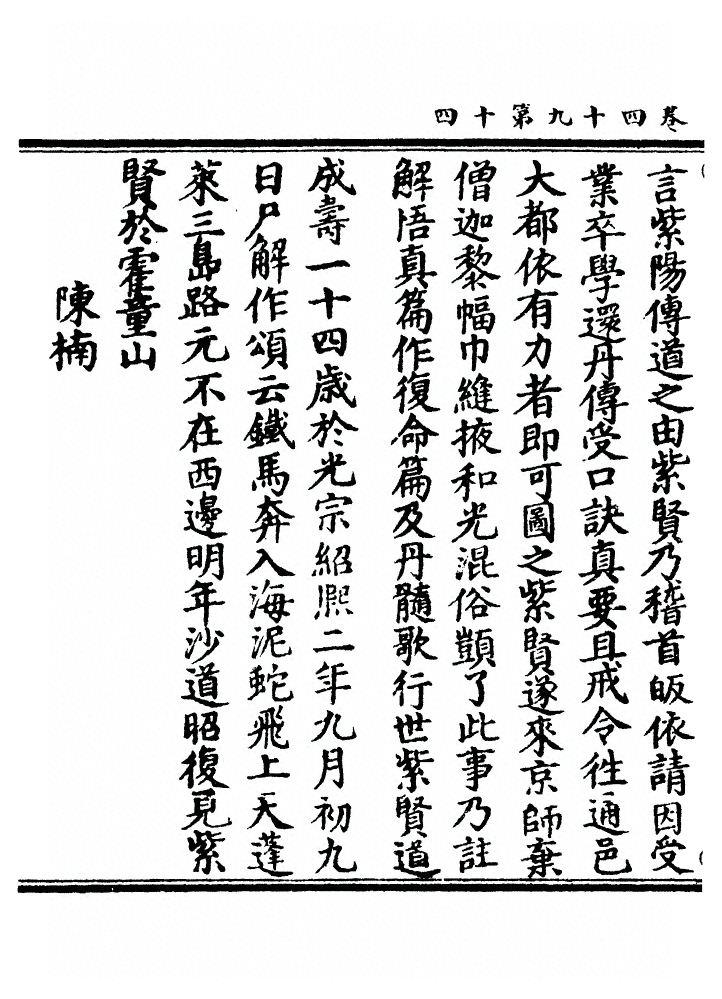 卷四十九第十四
言紫陽傳道之由紫賢乃稽首皈依請因受
業卒學還丹傳受口訣真要且戒令徃通邑
大都依有力者即可圖之紫賢遂來京師棄
僧迦黎幅巾縫掖和光混俗顗了此事乃註
解悟真篇作復命篇及丹髓歌行世紫賢道
成壽一十四歲於光宗紹熈二年九月初九
日尸解作頌云鐵馬奔入海泥蛇飛上天蓬
萊三島路元不在西邊明年沙道昭復見紫
賢於霍童山
陳楠